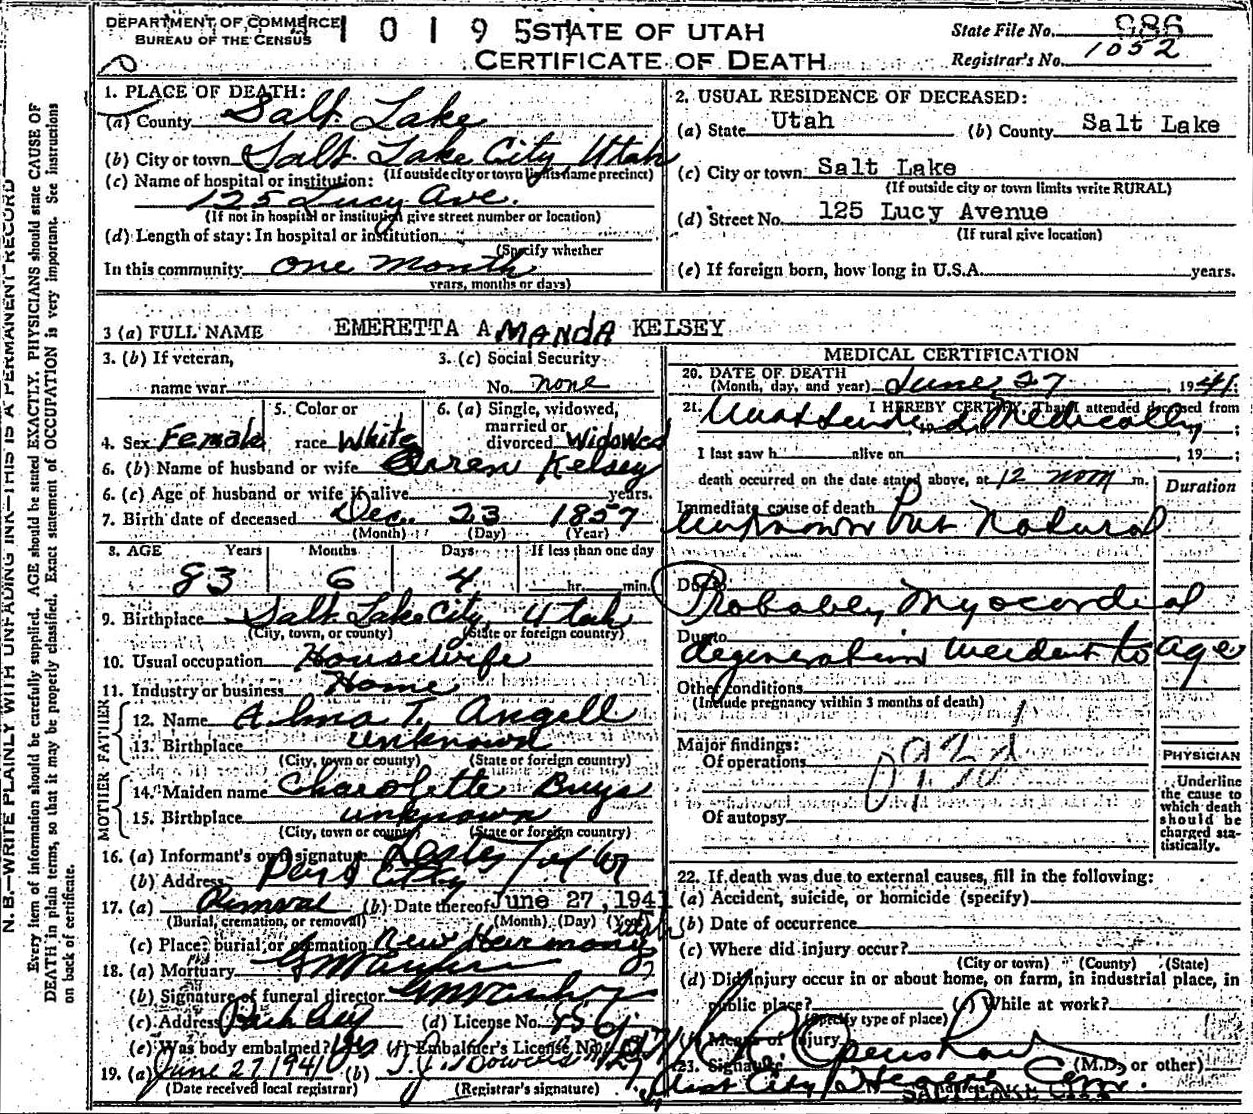 DEPARTMENT OF COMMERCE
BUREAU OF THE CENSUS
10195
STATE OF UTAH
CERTIFICATE OF DEATH
State File No. 986
Registrar's No. 1052
N. B.—WRITE PLAINLY WITH UNFADING INK—THIS IS A PERMANENT RECORD
Every item of information should be carefully supplied. AGE should be stated EXACTLY. PHYSICIANS should state CAUSE OF
DEATH in plain terms, so that it may be properly classified. Exact statement of OCCUPATION is very important. See instructions
on back of certificate.
1. PLACE OF DEATH:
(a) County Salt Lake
(b) City or town Salt Lake City Utah
(If outside city or town limits name precinct)
(c) Name of hospital or institution:
125 Lucy Ave.
(If not in hospital or institution give street number or location)
(d) Length of stay: In hospital or institution
(Specify whether
In this community one month
years, months or days)
2. USUAL RESIDENCE OF DECEASED:
(a) State Utah (b) County Salt Lake
(c) City or town: Salt Lake
(If outside city or town limits write RURAL)
(d) Street No. 125 Lucy Avenue
(If rural give location)
(e) If foreign born, how long in U.S.A. years.
3 (a) FULL NAME EMERETTA AMANDA KELSEY
3. (b) If veteran,
name war
3. (c) Social Security
No. none
4. Sex Female
5. Color or
race White
6. (a) Single, widowed,
married or
divorced Widowed
6. (b) Name of husband or wife Orren Kelsey
6. (c) Age of husband or wife if alive years.
7. Birth date of deceased Dec. 23 1857
(Month) (Day) (Year)
8. AGE Years Months Days If less than one day
83 6 4 hr. min.
9. Birthplace Salt Lake City, Utah
(City, town, or county) (State or foreign country)
10. Usual occupation Housewife
11. Industry or business Home
FATHER
12. Name Alma T. Angell
13. Birthplace unknown
(City, town or county) (State or foreign country)
MOTHER
14. Maiden name Charolette Buys
15. Birthplace unknown
(City, town or county) (State or foreign country)
16. (a) Informant's own signature Lester
(b) Address Park City
17. (a) Removal (b) Date thereof June 27, 1941
(Burial, cremation, or removal) (Month) (Day) (Year)
(c) Place: burial or cremation New Harmony Utah
18. (a) Mortuary
(b) Signature of funeral director
(c) Address Park City (d) License No.
(e) Was body embalmed? Yes (f) Embalmer's License No.
19. (a) June 27 1941 (b)
(Date received local registrar) (Registrar's signature)
MEDICAL CERTIFICATION
20. DATE OF DEATH
(Month, day, and year) June 27, 1941;
21. I HEREBY CERTIFY, That I attended deceased from
Unattended Medically
I last saw h alive on , 19 ;
death occurred on the date stated above, at 12 noon m.
Duration
Immediate cause of death
Unknown but Natural
Due to
Probably Myocardial
Due to
degeneration incident to age
Other conditions
(Include pregnancy within 3 months of death)
Major findings:
Of operations
Of autopsy
PHYSICIAN
Underline
the cause to
which death
should be
charged sta-
tistically.
22. If death was due to external causes, fill in the following:
(a) Accident, suicide, or homicide (specify)
(b) Date of occurrence
(c) Where did injury occur?
(City or town) (County) (State)
(d) Did injury occur in or about home, on farm, in industrial place, in
public place? (e) While at work?
(Specify type of place)
(f) Means of injury
23. Signature (M.D. or other)
City Health Com.
SALT LAKE CITY